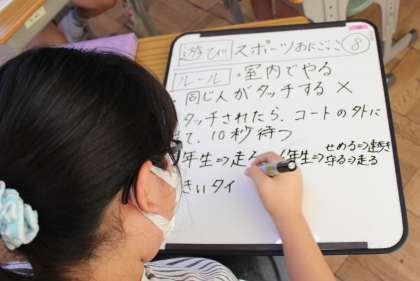 遊び スポーツおにごっこ ⑧
ルール ・室内でやる
同じ人がタッチする×
タッチされたら、コートの外に
て、10秒待つ
年生⇒走る 年生⇒ せめる⇒速歩き
守る⇒走る
きいタイ